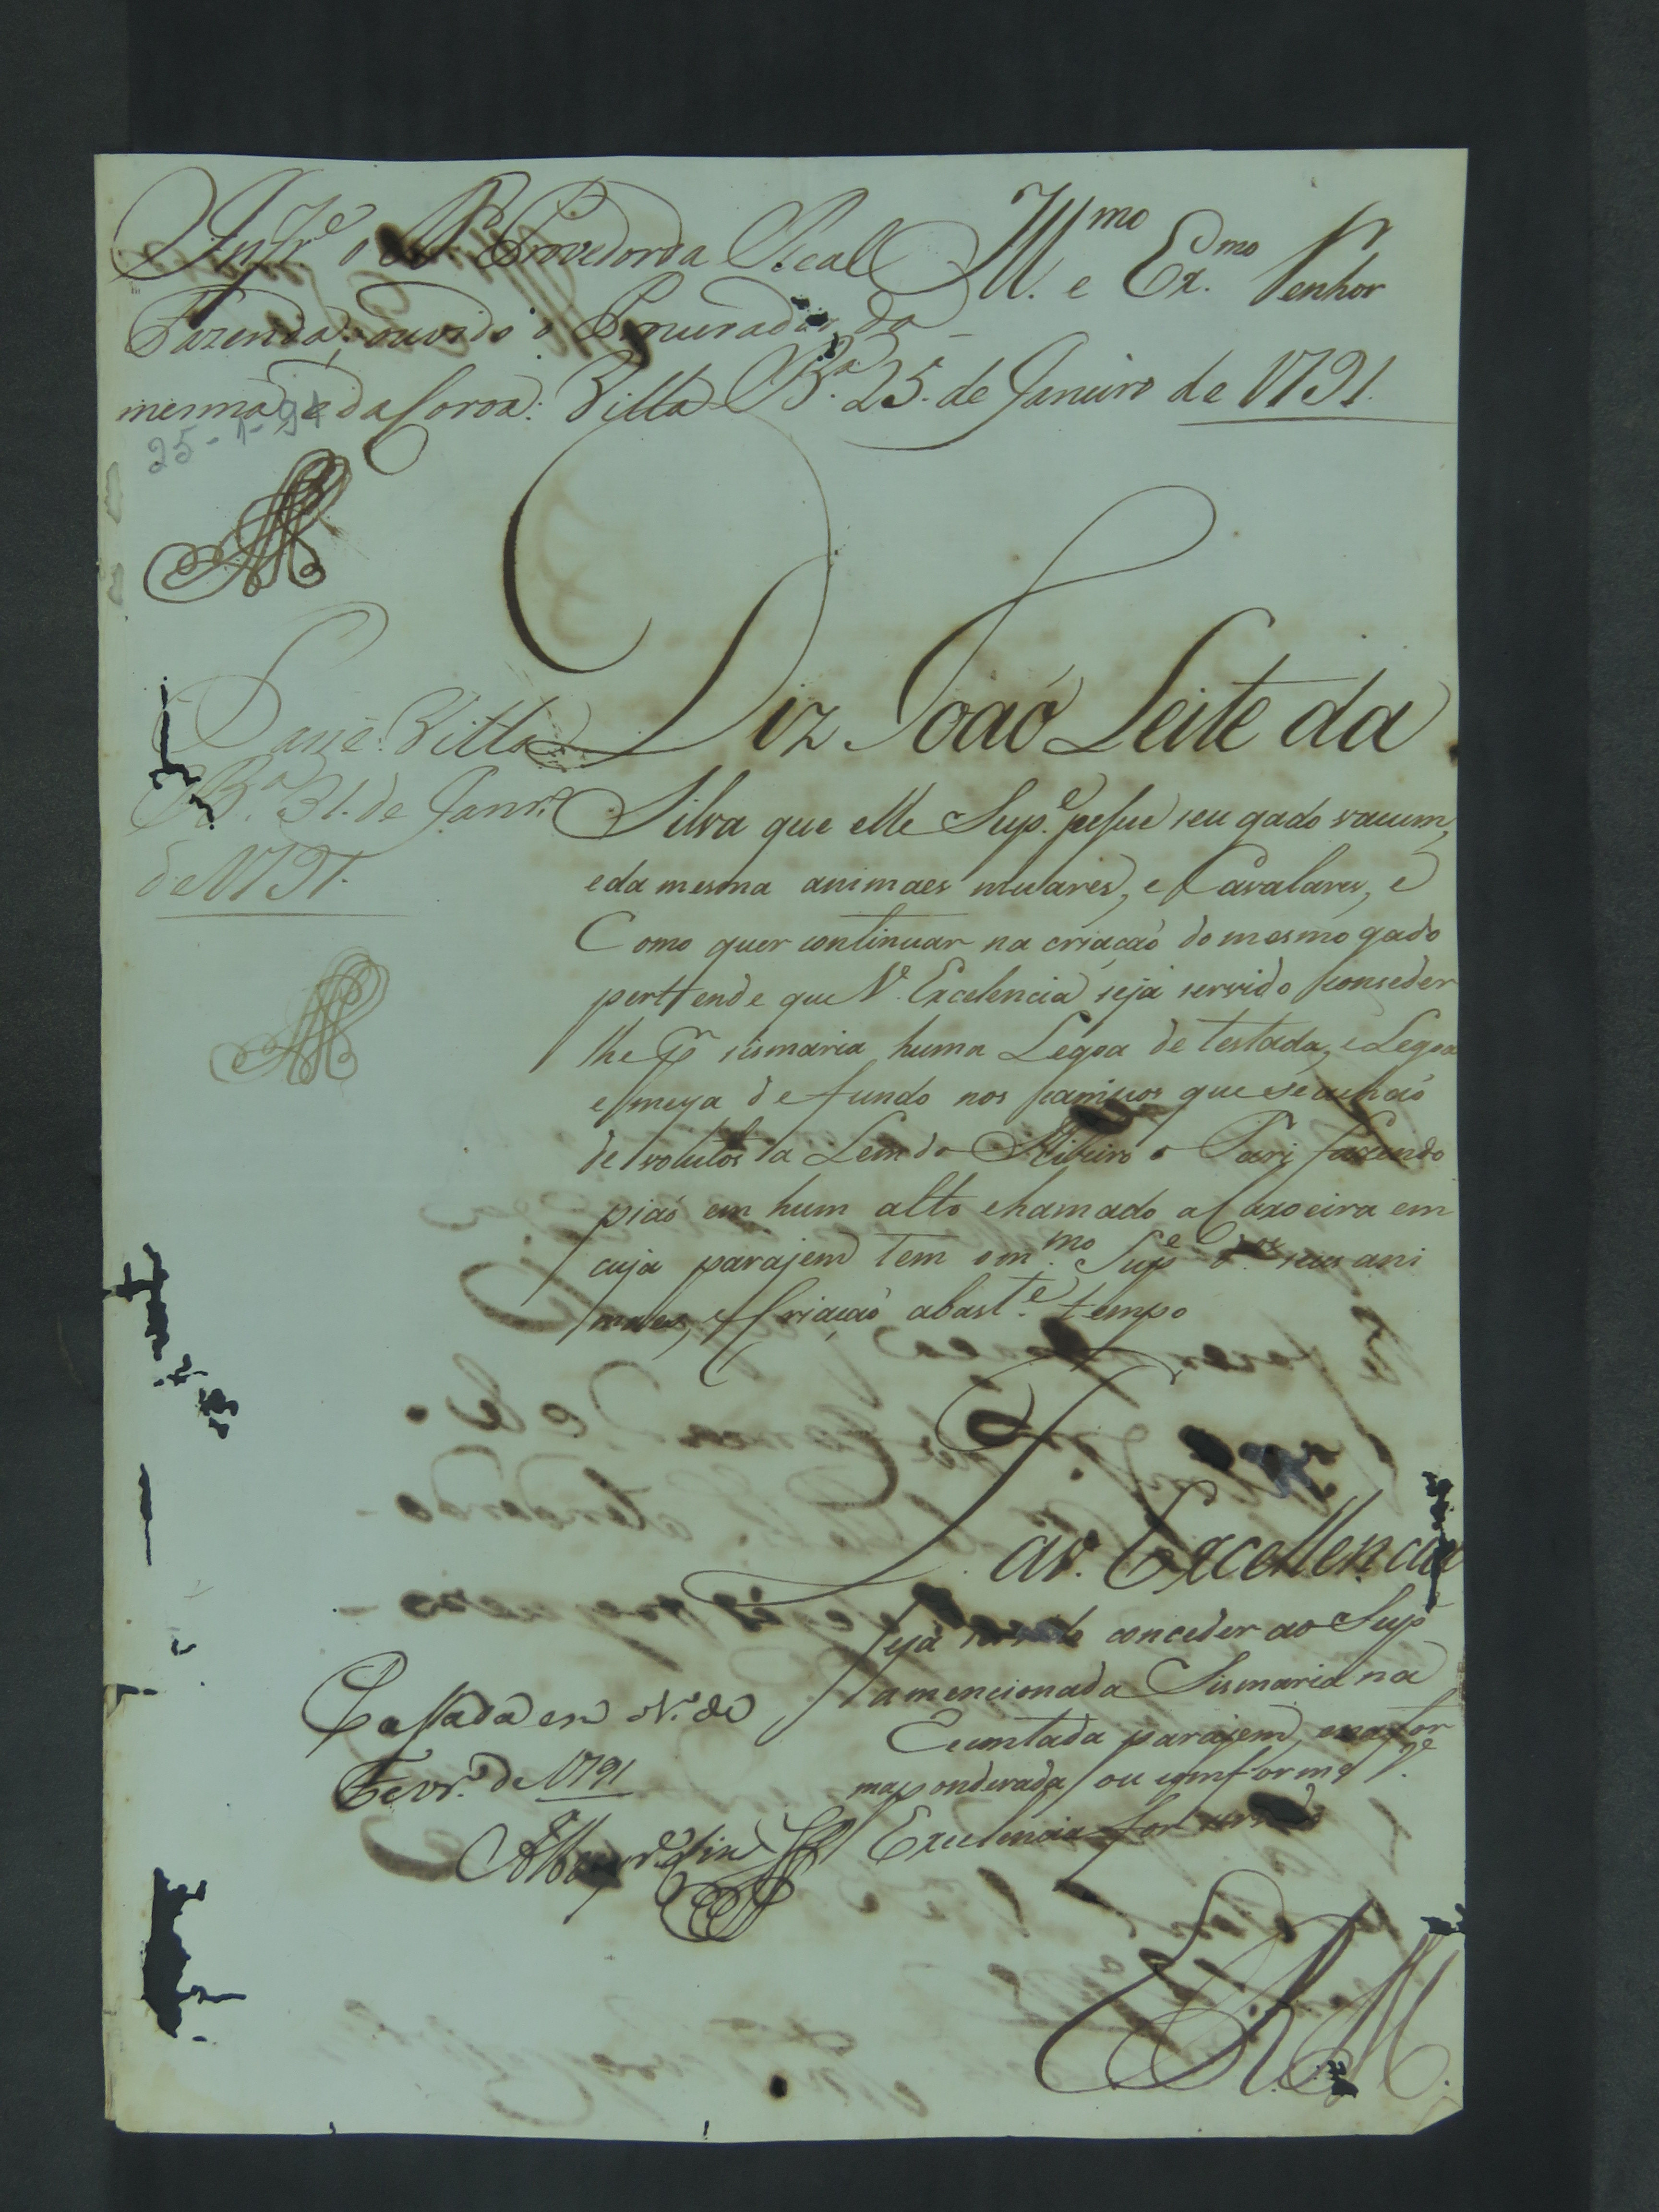 Infr.e o D.r Provedor da Real
Fazenda, ouvido o Procurador da
mesma, e da Coroa. Villa B.a 25. de Janeiro de 1791.
25-1-91
Ill.mo e Ex.mo Senhor
Passe. Villa
B.a 31. de Janr.o
de 1791.
Diz Joaó Leite da
Silva que elle Sup.e pesue seu gado vacum,
e da mesma animaes muares, e Cavalares, e
Como quer continuar na criaçaó do mesmo gado
perttende que V. Excelencia seja servido conseder
lhe p.r sismaria huma Legoa de testada, e Legoa
e meya de fundo nos campos que se achaó
devolutos a Lem do Ribeiro o Pari fazendo
piaó em hum alto chamado a Caxoeira em
cuja parajem tem o m.mo Sup.e os seus ani
maes, e Criaçaó a bast.e tempo
P. a V. Excellencia
seja servido conceder ao Sup.e
a mencionada Sismaria na
Ecuntada parajem, e na for
ma ponderada ou comforme V.
Excelencia for servido
Passada em N. de
Fevr.o de 1791
E R M.